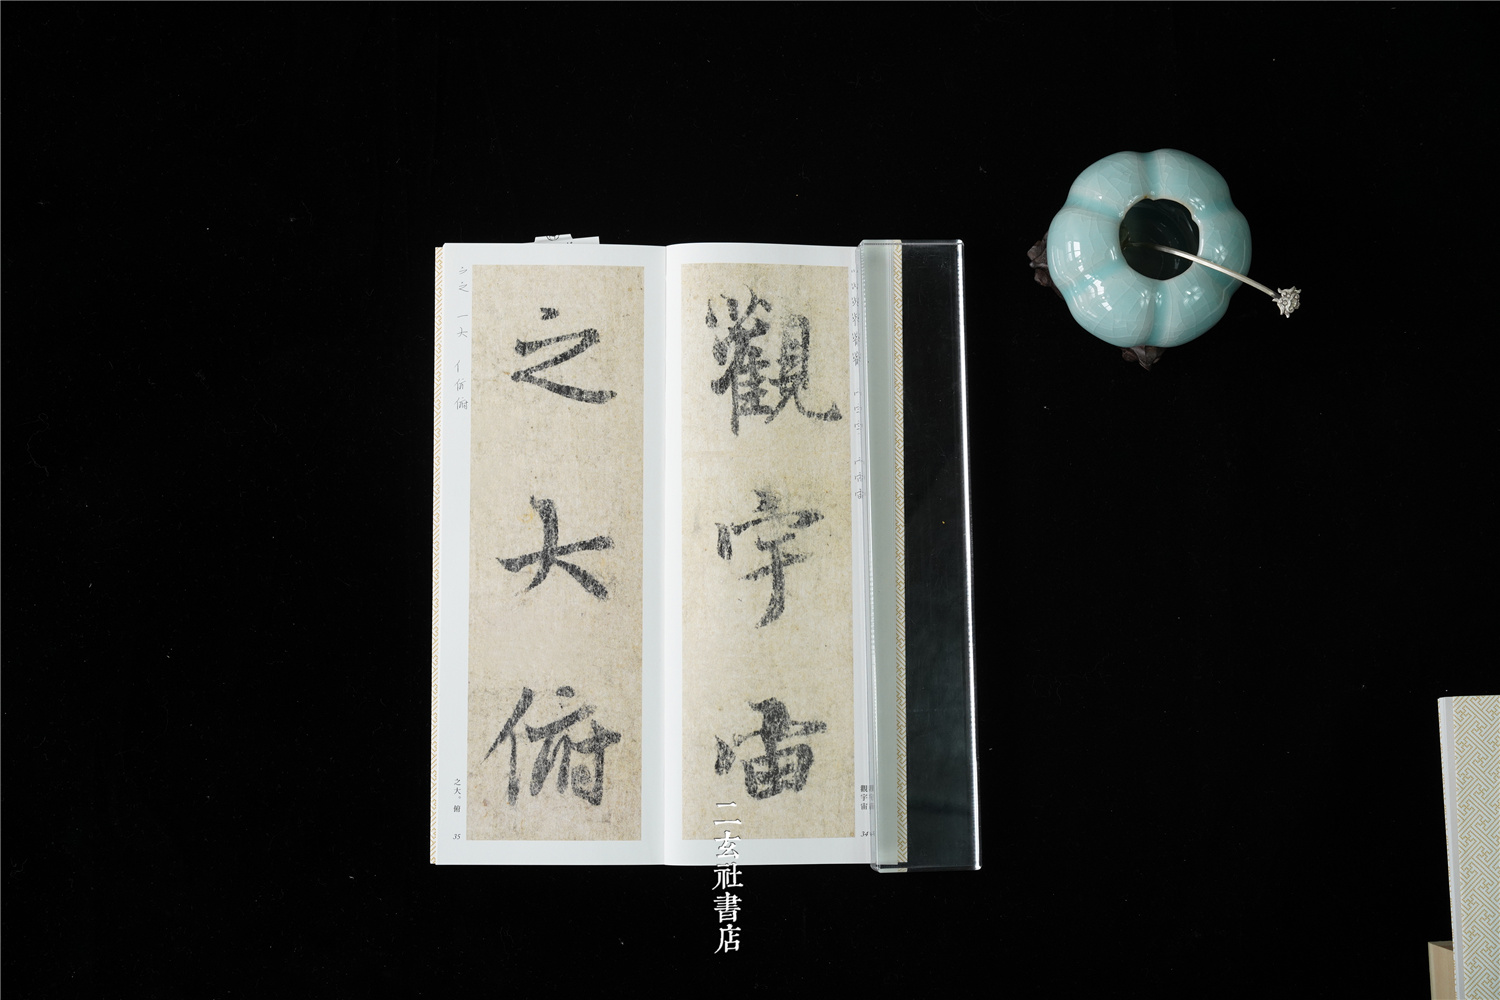 觀宇宙
觀宇宙
34
之大俯
之大、俯
35
二玄社書店